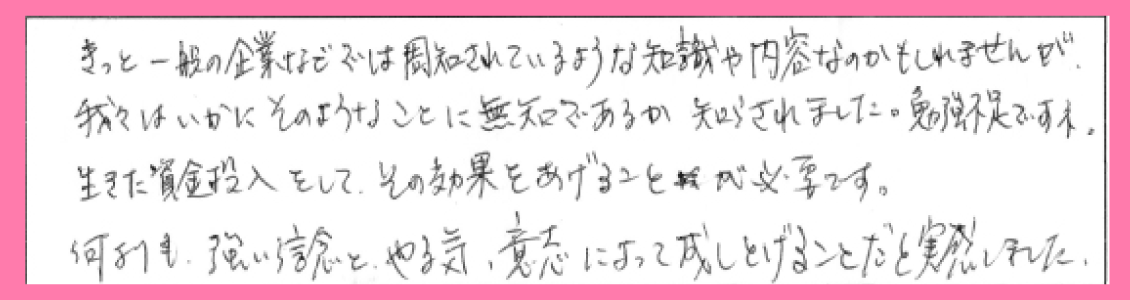 きっと一般の企業などでは周知されているような知識や内容なのかもしれませんが、
我々はいかにそのようなことに無知であるか知らされました。勉強不足ですネ。
生きた資金投入をして、その効果をあげることが必要です。
何よりも、強い信念と、やる気、意志によって成しとげることだと実感しました、